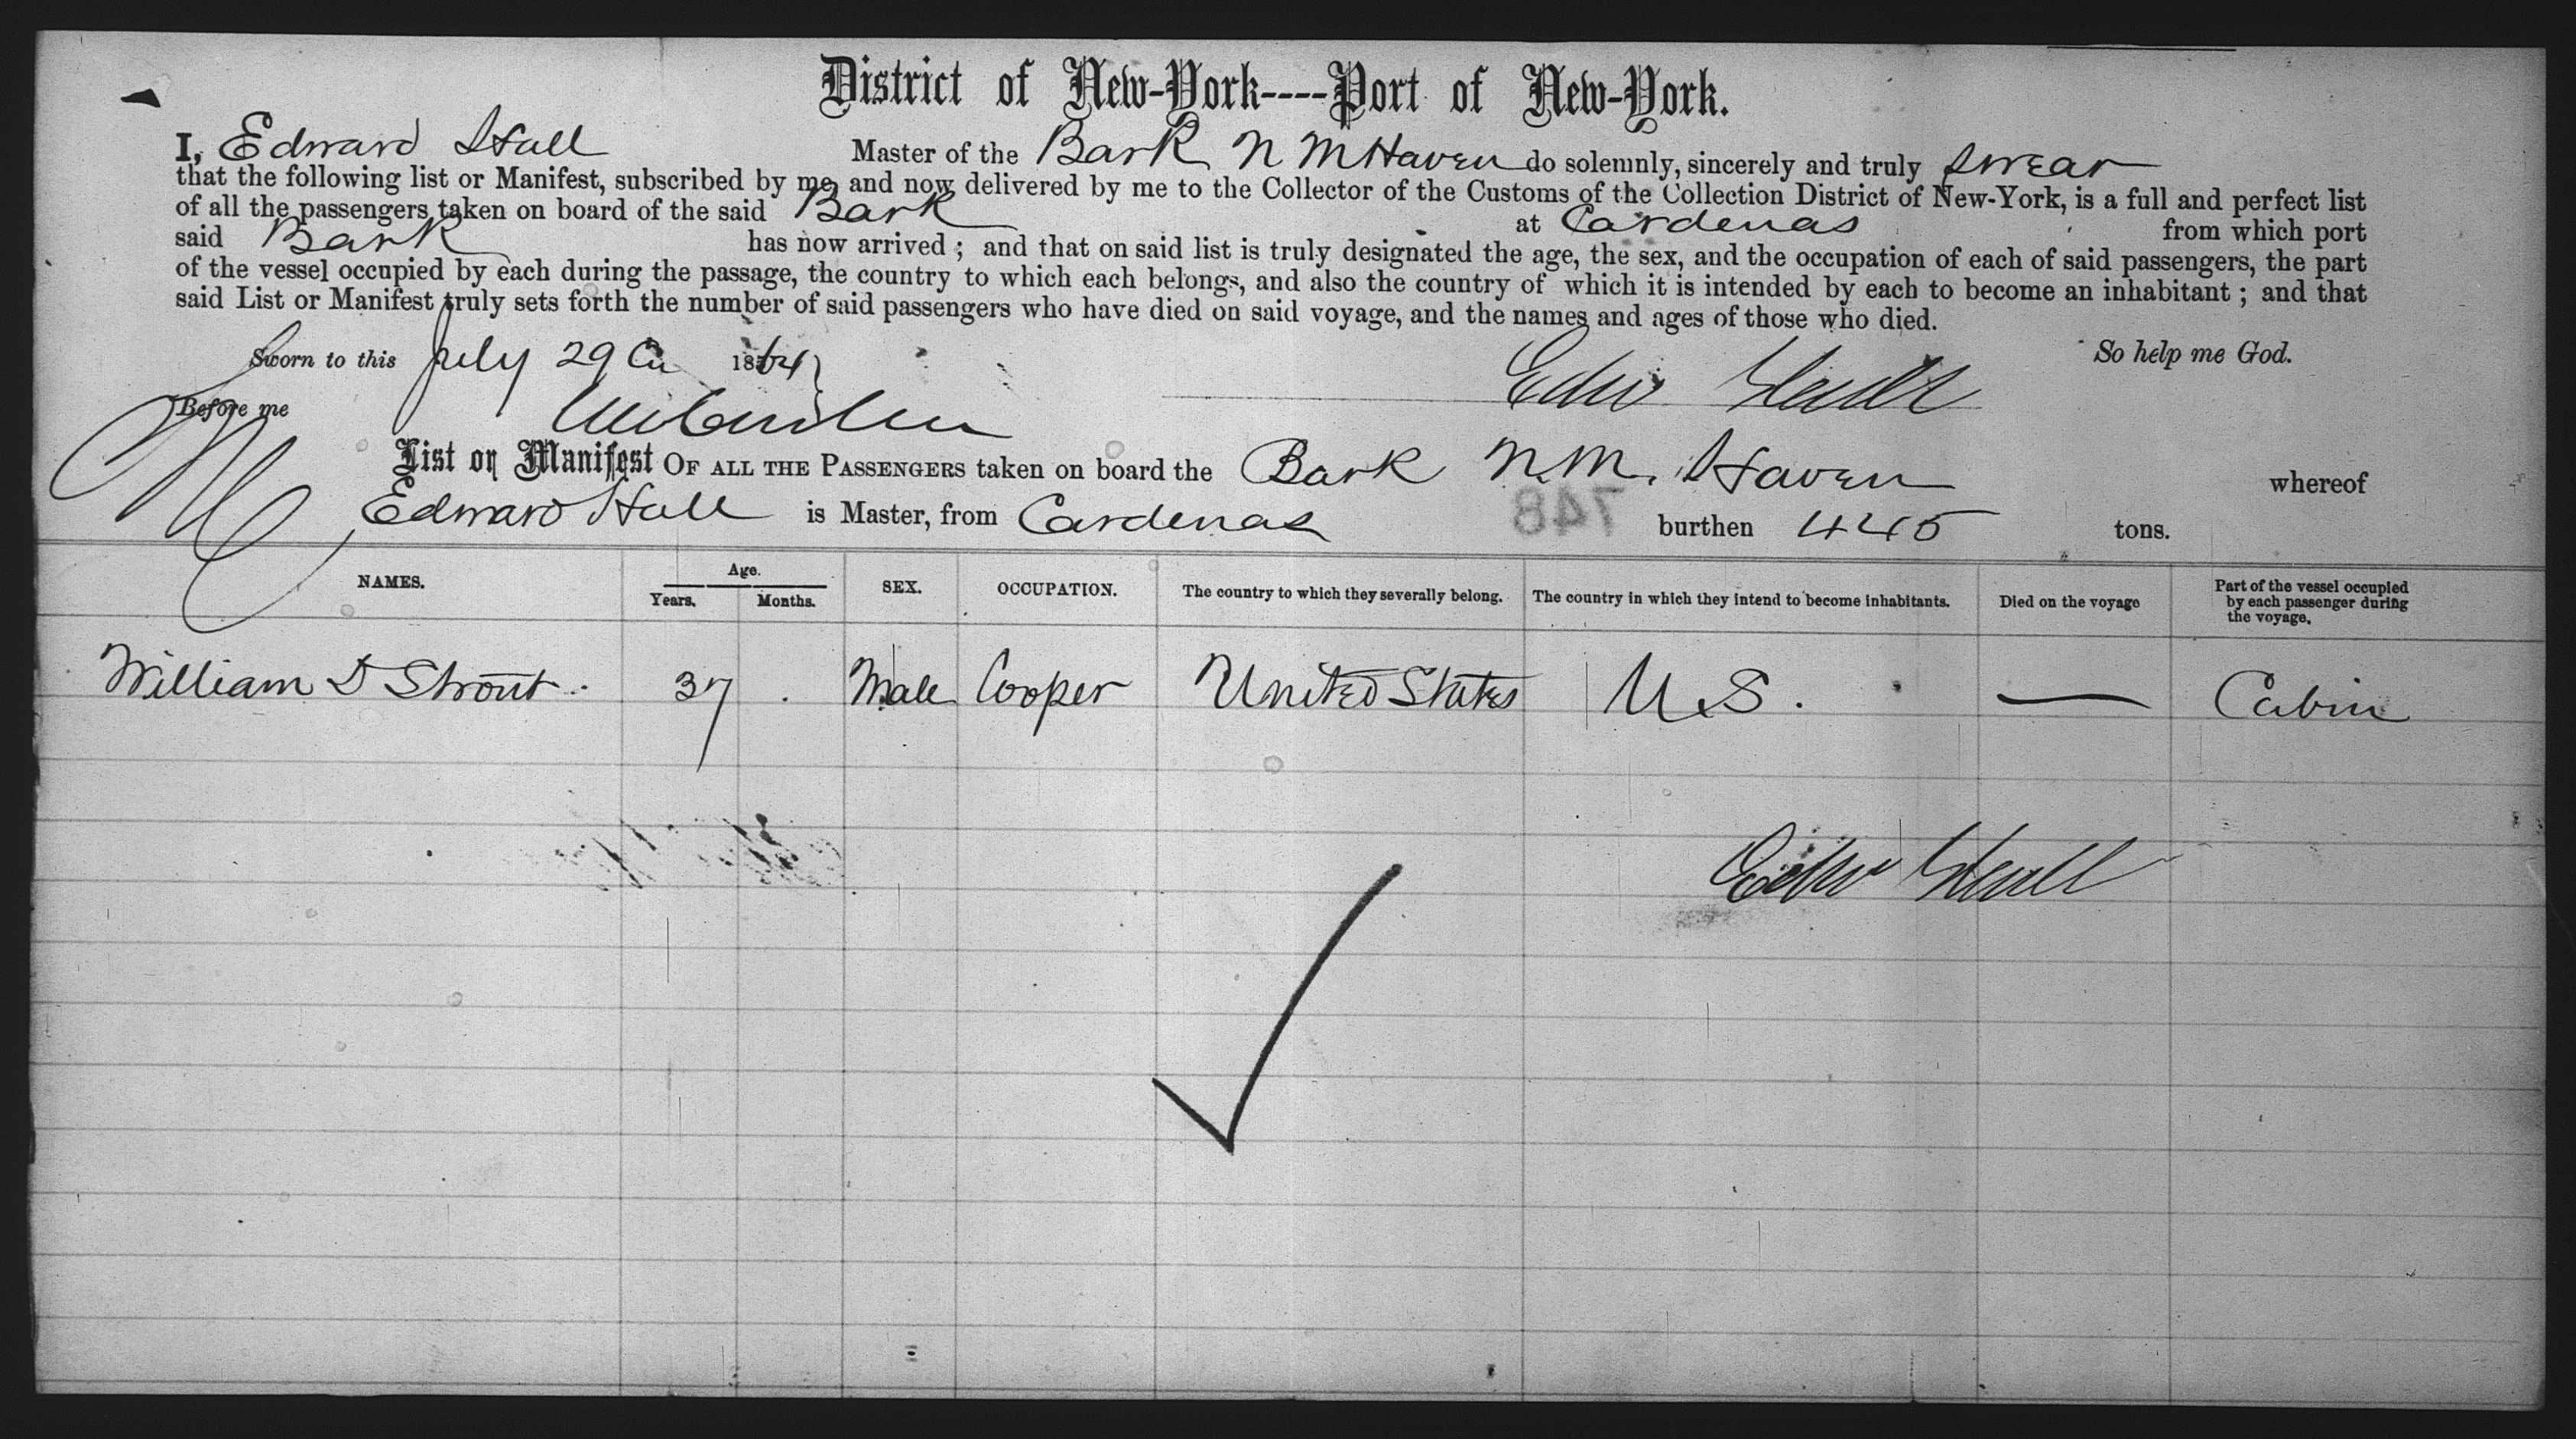 District of New-York----Port of New-York.
I, Edward Hall Master of the Bark N M Haven do solemnly, sincerely and truly swear
that the following list or Manifest, subscribed by me, and now delivered by me to the Collector of the Customs of the Collection District of New-York, is a full and perfect list
of all the passengers taken on board of the said Bark at Cardenas from which port
said Bark has now arrived ; and that on said list is truly designated the age, the sex, and the occupation of each of said passengers, the part
of the vessel occupied by each during the passage, the country to which each belongs, and also the country of which it is intended by each to become an inhabitant ; and that
said List or Manifest truly sets forth the number of said passengers who have died on said voyage, and the names and ages of those who died.
Sworn to this July 29 1864 So help me God.
Before me Edw Hall
List or Manifest OF ALL THE PASSENGERS taken on board the Bark N.M. Haven whereof
Edward Hall is Master, from Cardenas burthen 445 tons.
748
NAMES. Age. Years. Months. SEX. OCCUPATION. The country to which they severally belong. The country in which they intend to become inhabitants. Died on the voyage Part of the vessel occupied by each passenger during the voyage.
William D Strout 37 Male Cooper United States U.S. — Cabin
Edw Hall